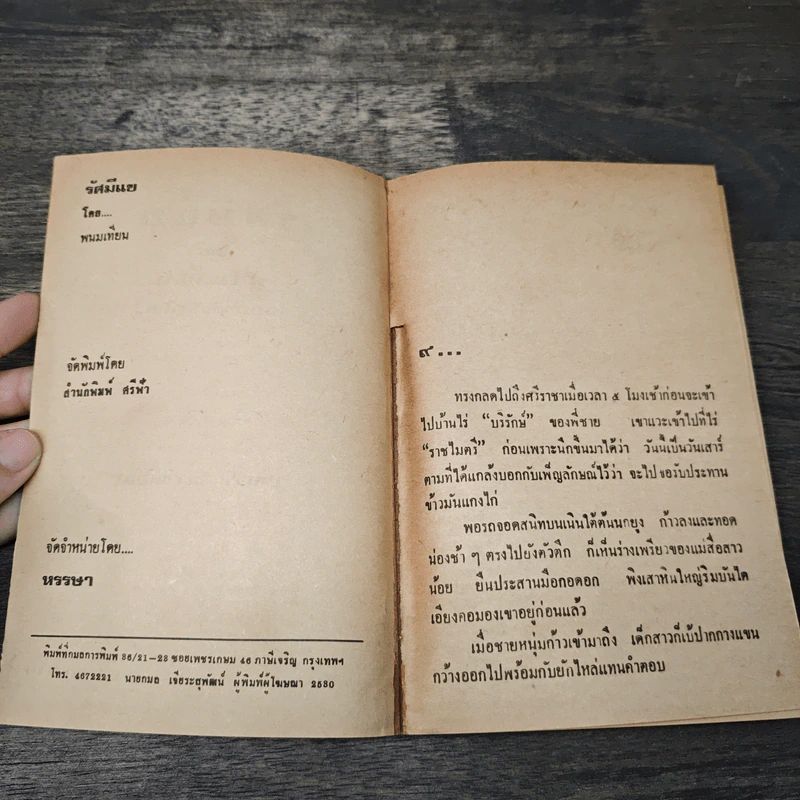 รัศมีแข
โดย....
พนมเทียน
จัดพิมพ์โดย
สำนักพิมพ์ ศรีฟ้า
จัดจำหน่ายโดย....
หรรษา
พิมพ์ที่กมลการพิมพ์ 86/21-23 ซอยเพชรเกษม 46 ภาษีเจริญ กรุงเทพฯ
โทร. 4672221 นายกมล เจียระสุพัฒน์ ผู้พิมพ์ผู้โฆษณา 2530
๙...
ทรงกลดไปถึงศรีราชาเมื่อเวลา ๕ โมงเช้าก่อนจะเข้า
ไปบ้านไร่ "บริรักษ์" ของพี่ชาย เขาแวะเข้าไปที่ไร่
"ราชไมตรี" ก่อนเพราะนึกขึ้นมาได้ว่า วันนี้เป็นวันเสาร์
ตามที่ได้แกล้งบอกกับเพ็ญลักษณ์ไว้ว่า จะไปขอรับประทาน
ข้าวมันแกงไก่
พอรถจอดสนิทบนเนินใต้ต้นนกยูง ก้าวลงและทอด
น่องช้า ๆ ตรงไปยังตัวตึก ก็เห็นร่างเพรียวของแม่สื่อสาว
น้อย ยืนประสานมือกอดอก พิงเสาหินใหญ่ริมบันได
เอียงคอมองเขาอยู่ก่อนแล้ว
เมื่อชายหนุ่มก้าวเข้ามาถึง เด็กสาวก็เบ้ปากกางแขน
กว้างออกไปพร้อมกับยักไหล่แทนคำตอบ